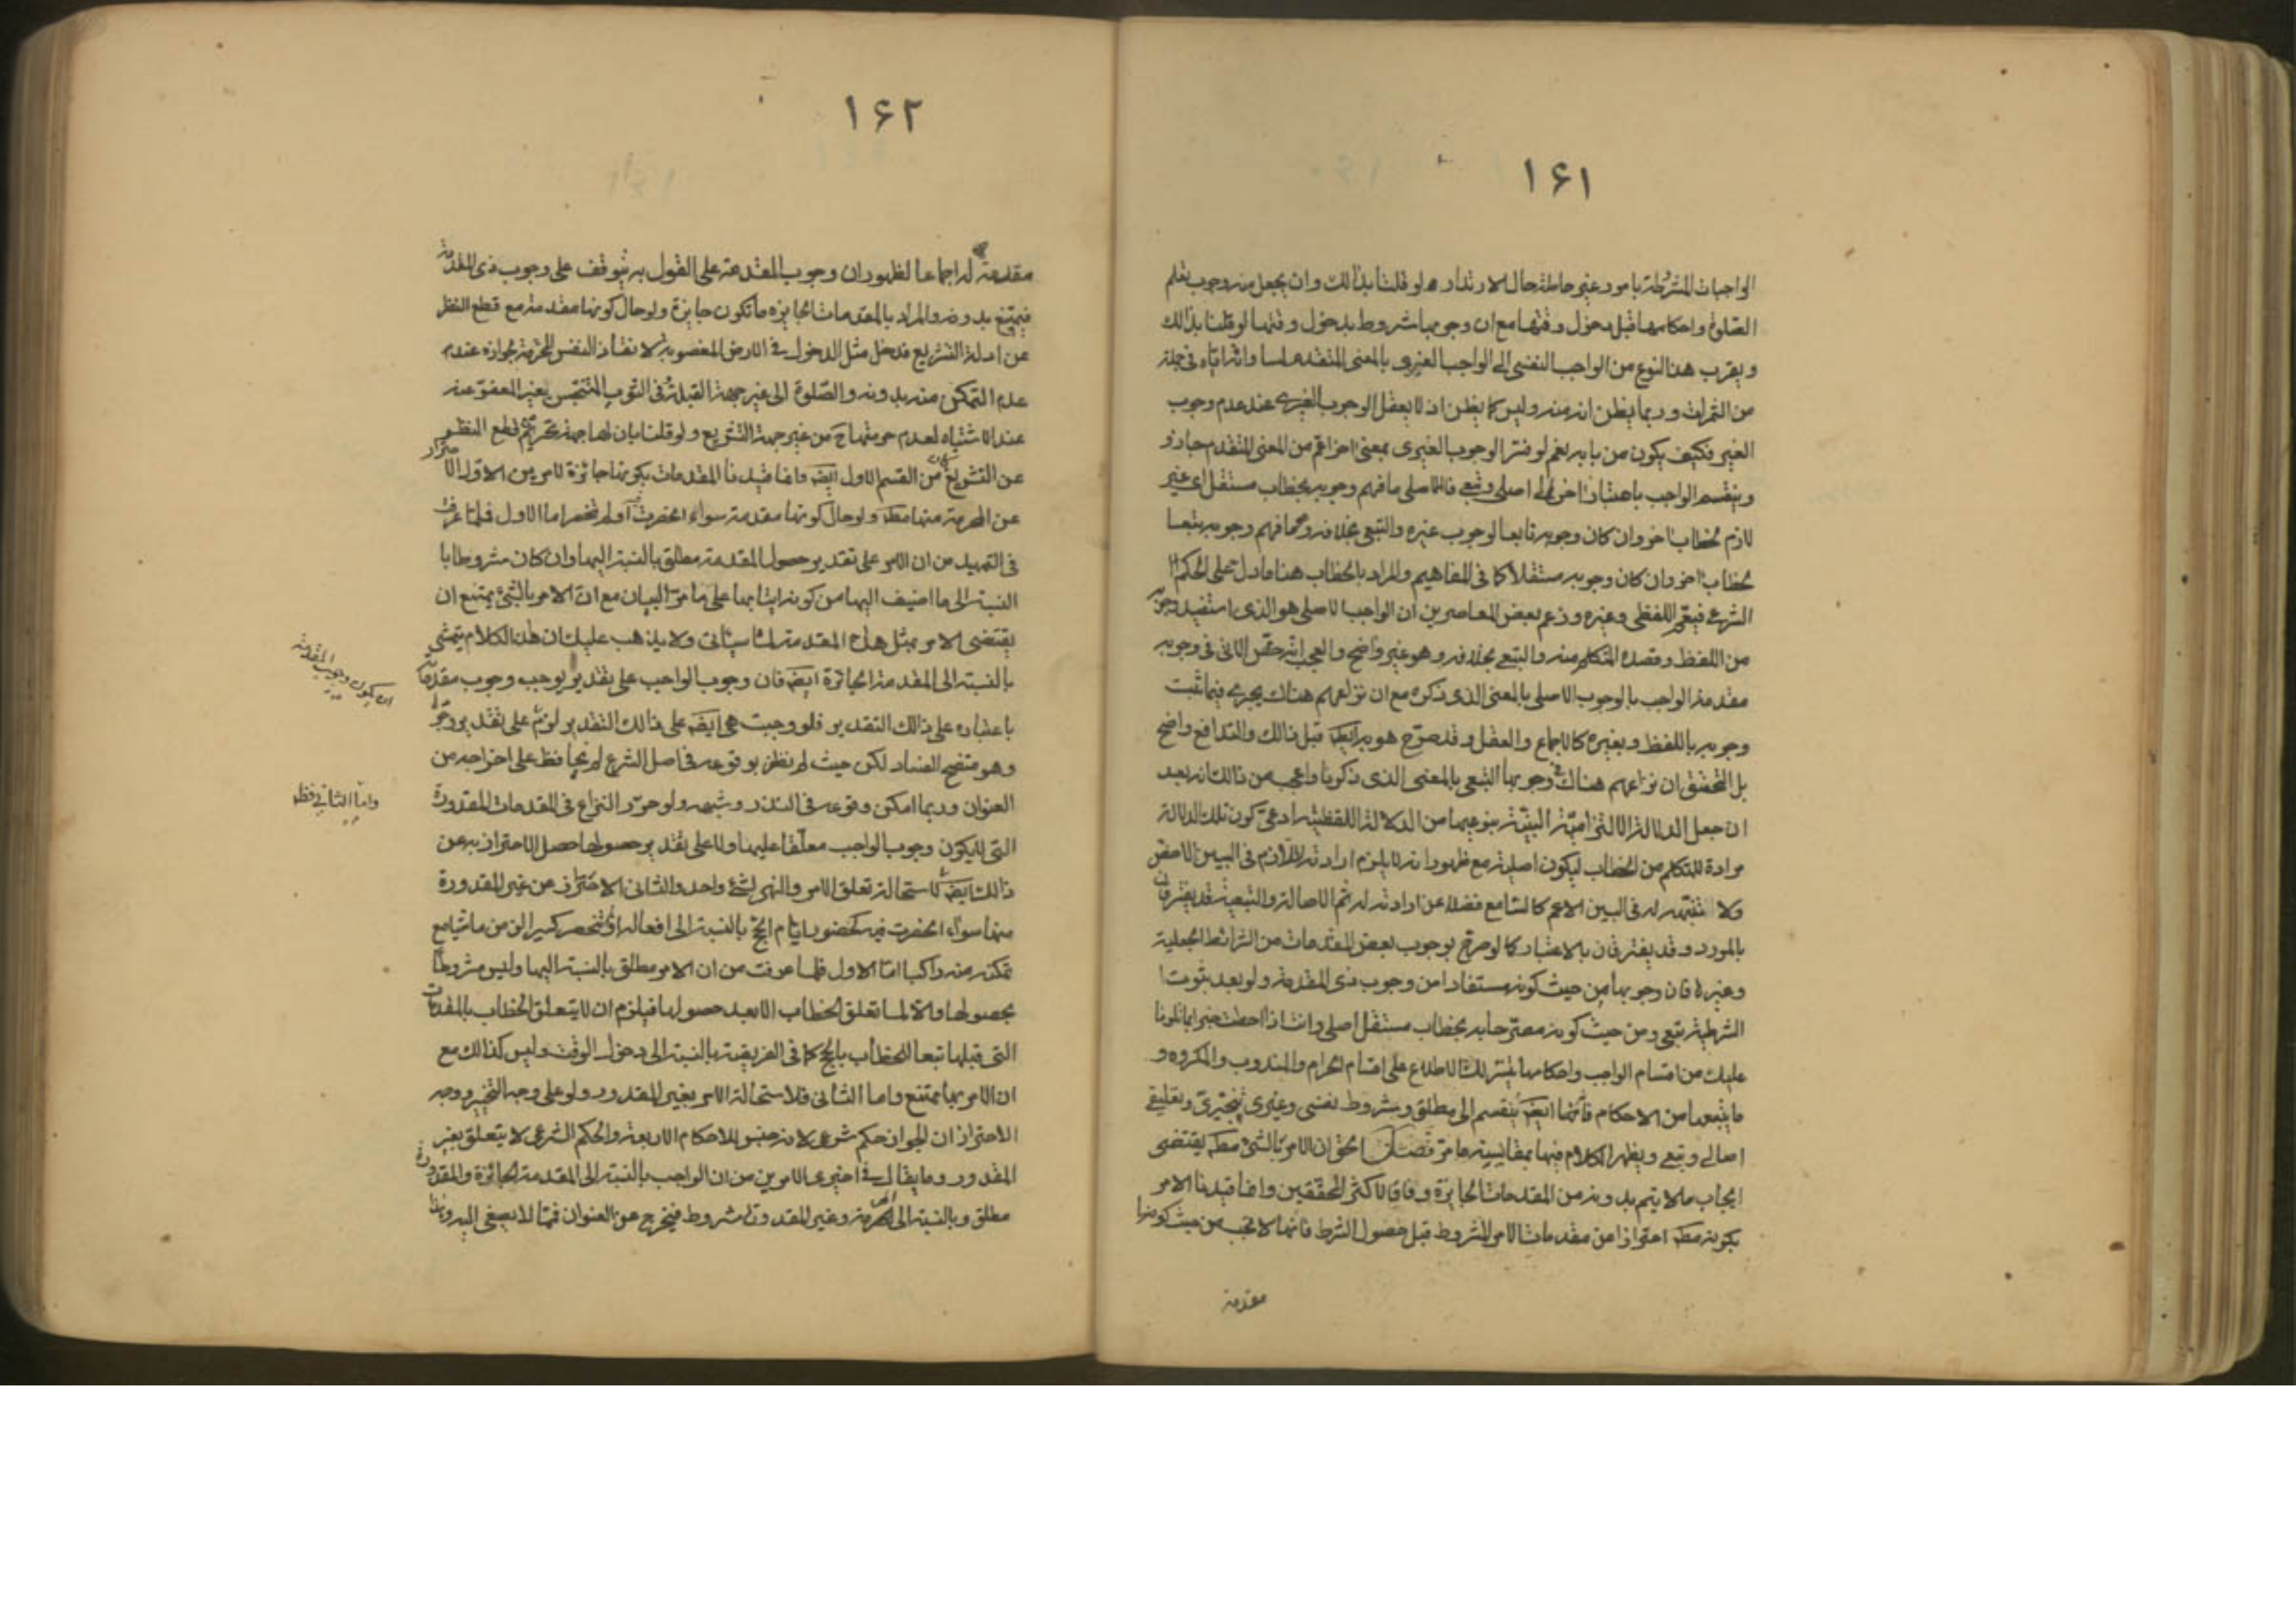 ١۶١
الواجبات المشروطة بامور غير حاصلة حال الارتداد لو قلنا بذالك وان يجعل منه وجوب تعلم
الصلوة واحكامها قبل دخول وقتها مع ان وجوبها مشروط بدخول وقتها لو قلنا بذالك
ويقرب هذا النوع من الواجب النفسى الى الواجب الغيرى بالمعنى المتقدم
من الثمرات وربما يظن انه منه وليس كما يظن اذ لا يعقل الوجوب الغيرى عند عدم وجوب
الغير فكيف يكون من بابه نعم لو فسّر الوجوب الغيرى بمعنى اخر اعم من المعنى المتقدم جاز و
وينقسم الواجب باعتبار اخر الى اصلى وتبعى فالاصلى ما فهم وجوبه بخطاب مستقل اى غير
لازم لخطاب اخر وان كان وجوبه تابعا لوجوب غيره والتبعى بخلافه وهو ما فهم وجوبه تبعا
لخطاب اخر وان كان وجوبه مستقلا كما فى المفاهيم والمراد بالخطاب هنا ما دل على الحكم
الشرعى فيعم اللفظى وغيره وزعم بعض المعاصرين ان الواجب الاصلى هو الذى استفيد وجوبه
من اللفظ وقصده المتكلم منه والتبعى بخلافه وهو غير واضح والعجب انه خص النزاع فى وجوب
مقدمة الواجب بالوجوب الاصلى بالمعنى الذى ذكره مع ان نزاعهم هناك يجرى فيما ثبت
وجوبه باللفظ وبغيره كالاجماع والعقل وقد صرّح هو به ايضا قبل ذالك والتدافع واضح
بل التحقيق ان نزاعهم هناك فى وجوبها التبعى بالمعنى الذى ذكرنا واعجب من ذالك انه بعد
ان جعل الدلالة الالتزامية البيّنة بنوعيها من الدلالة اللفظية ادعى كون تلك الدلالة
مرادة للمتكلم من الخطاب ليكون اصليه مع ظهور انه لا يلزم ارادته للازم فى البين الاخص
ولا تنبّهه له فى البين الاعم كالشارع فضلا عن ارادته له ثم الاصالة والتبعية قد يفترقان
بالمورد وقد يفترقان بالاعتبار كما لو صرح بوجوب بعض المقدمات من الشرائط الجعلية
وغيرها فان وجوبها من حيث كونه مستفادا من وجوب ذى المقدمة ولو بعد ثبوت
الشرطية تبعى ومن حيث كونه مصرّحا به بخطاب مستقل اصلى وانت اذا احطت خبرا بما تلونا
عليك من اقسام الواجب واحكامها تيسّر لك الاطلاع على اقسام الحرام والمندوب والمكروه و
ما يتبعها من الاحكام فانها ايضا ينقسم الى مطلق ومشروط نفسى وغيرى تنجيزى وتعليقى
اصلى وتبعى ويظهر الكلام فيها بمقايسة ما مر فصل الحق ان الامر بالشئ مطلقا يقتضى
ايجاب ما لا يتم بدونه من المقدمات الجايزة وفاقا لاكثر المحققين وانما قيدنا الامر
بكونه مطلقا احترازا من مقدمات الامر المشروط قبل حصول الشرط فانها لا تجب من حيث كونها
مقدمة
١۶٢
مقدمة له اجماعا لظهور ان وجوب المقدمة على القول به يتوقف على وجوب ذى المقدمة
فيمتنع بدونه والمراد بالمقدمات الجايزه ما تكون جايزة ولو حال كونها مقدمة مع قطع النظر
عن ادلة التشريع فدخل مثل الدخول فى الارض المغصوبة لانقاذ النفس المحترمة لجوازه عند
عدم التمكن منه بدونه والصلوة الى غير جهة القبلة وفى الثوب المتنجّس بغير المعفوّ عنه
عند الاشتباه لعدم حرمتها ح من غير جهة التشريع ولو قلنا بان لها جهة تحريم مع قطع النظر
عن التشريع كان من القسم الاول ايضا وانما قيدنا المقدمات بكونها جائزة لامرين الاول الاحتراز
عن المحرمة منها مطلقا ولو حال كونها مقدمة سواء انحصرت او لم تنحصر اما الاول فلما عرفت
فى التمهيد من ان الامر على تقدير حصول المقدمة مطلق بالنسبة اليها وان كان مشروطا با
النسبة الى ما اضيف اليها من كونه اتيا بها على ما مرّ البيان مع ان الامر بالشئ يمتنع ان
يقتضى الامر بمثل هذه المقدمة لما سيأتى ولا يذهب عليك ان هذا الكلام يتمشى
بالنسبة الى المقدمة الجائزة ايضا فان وجوب الواجب على تقدير لو يوجب وجوب مقدماته
باعتباره على ذالك التقدير فلو وجبت هى ايضا على ذالك التقدير لزم على تقدير وجوبها
ان يكون وجوب المقدمة
وهو متضح الفساد لكن حيث لم نظفر بوقوعه فى اصل الشرع لم نحافظ على اخراجه من
العنوان وربما امكن وقوعه فى النذر وشبهه ولو حرّر النزاع فى المقدمات المقدورة
واما الثانى فظ
التى لا يكون وجوب الواجب معلّقا عليها ولا على تقدير حصولها حصل الاحتراز به عن
ذالك ايضا لاستحالة تعلق الامر والنهى لشئ واحد والثانى الاحتراز من غير المقدورة
منها سواء انحصرت فيه كحضور ايام الحج بالنسبة الى افعاله او لم تنحصر كسيره من ماشيا مع
تمكنه منه راكبا امّا الاول فلما عرفت من ان الامر مطلق بالنسبة اليها وليس مشروطا
بحصولها والا لما تعلق الخطاب الا بعد حصولها فيلزم ان لا يتعلق الخطاب بالمقدمات
التى قبلها تبعا للخطاب بالحج كما فى الفريضة بالنسبة الى دخول الوقت وليس كذالك مع
ان الامر بها ممتنع واما الثانى فلاستحالة الامر بغير المقدور ولو على وجه التخيير ووجه
الاحتراز ان الجواز حكم شرعى لانه جنس للاحكام الاربعة والحكم الشرعى لا يتعلق بغير
المقدور وما يقال فى اخيرى الامرين من ان الواجب بالنسبة الى المقدمة الجائزة والمقدورة
مطلق وبالنسبة الى المحرمة وغير المقدورة مشروط فيخرج عن العنوان فمما لا يصغى اليه